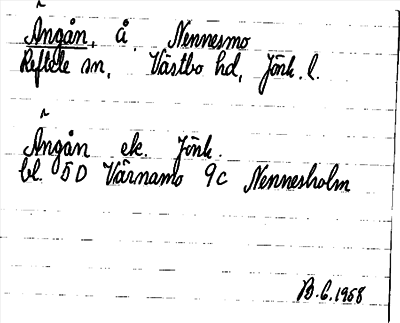 Ãngån, å Nennesmo
Reftele sn, Västbo hd, Jönk. l.
Ãngån ek. Jönk.
bl. 5D Värnamo 9c Nennesholm
B.G. 1968